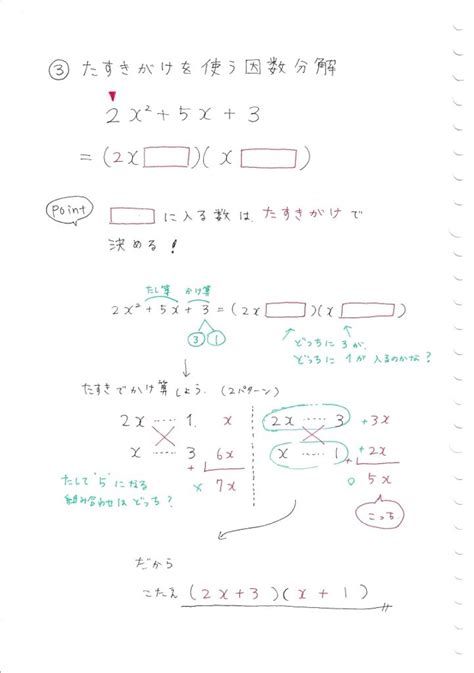 ③ たすきがけを使う因数分解
2x² + 5x + 3
= (2x □)(x □)
Point □ に入る数は、たすきがけで
決める!
たし算 かけ算
2x² + 5x + 3 = (2x □)(x □)
③ ①
どっちに3が、
どっちに1が入るのかな?
たすきでかけ算しよう。(2パターン)
2x …… 1 x
x …… 3 6x
+
× 7x
2x …… 3 +3x
x …… 1 +2x
+
○ 5x
たして"5"になる
組み合わせはどっち?
こっち
だから
こたえ (2x+3)(x+1)